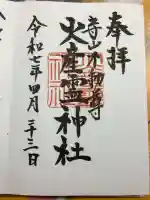 奉拝
寺山不動尊
火産霊神社
令和七年四月二十三日